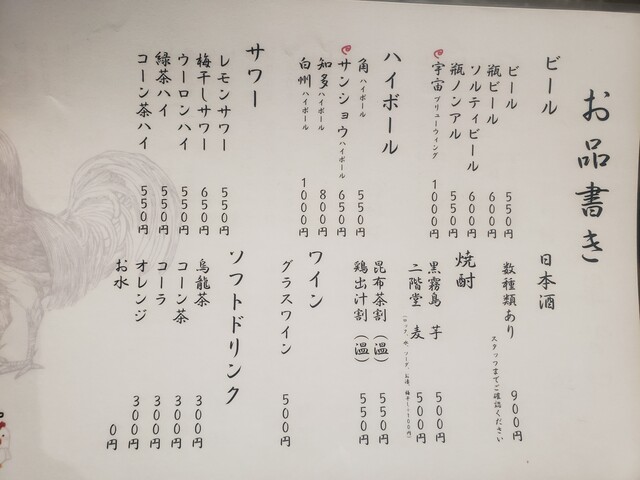 お品書き
ビール
ビール 550円
瓶ビール 600円
ソルティビール 600円
瓶ノンアル 550円
宇宙ブリューウィング 1000円
ハイボール
角ハイボール 550円
サンショウハイボール 650円
知多ハイボール 800円
白州ハイボール 1000円
サワー
レモンサワー 550円
梅干しサワー 650円
ウーロンハイ 550円
緑茶ハイ 550円
コーン茶ハイ 550円
日本酒
数種類あり 900円
スタッフまでご確認ください
焼酎
黒霧島 芋 500円
二階堂 麦 500円
昆布茶割(温) 550円
鶏出汁割(温) 550円
ワイン
グラスワイン 500円
ソフトドリンク
烏龍茶 300円
コーン茶 300円
コーラ 300円
オレンジ 300円
お水 0円